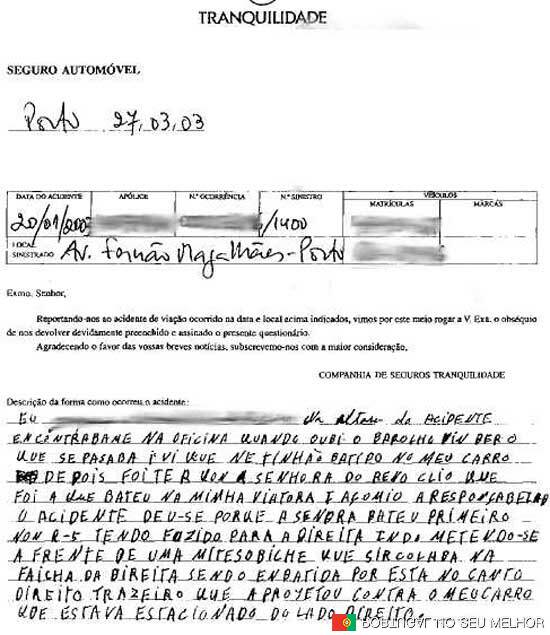 TRANQUILIDADE
SEGURO AUTOMÓVEL
Porto 27,03,03
DATA DO ACIDENTE APÓLICE N.º OCORRÊNCIA N.º SINISTRO VEÍCULOS
MATRÍCULAS MARCAS
20/01/2003 /1400
LOCAL
SINISTRADO Av. Fernão Magalhães-Porto
Exmo. Senhor,
Reportando-nos ao acidente de viação ocorrido na data e local acima indicados, vimos por este meio rogar a V. Exa. o obséquio
de nos devolver devidamente preenchido e assinado o presente questionário.
Agradecendo o favor das vossas breves notícias, subscrevemo-nos com a maior consideração,
COMPANHIA DE SEGUROS TRANQUILIDADE
Descrição da forma como ocorreu o acidente:
EU Na altura do ACIDENTE
ENCONTRABAME NA OFICINA QUANDO OUBI O BAROLHO VIN BER O
QUE SE PASABA I VI QUE ME TINHÃO BATIDO NO MEU CARRO
DEPOIS FOI TER CON A SENHORA DO RENO CLIO QUE
FOI A QUE BATEU NA MINHA VIATORA I A
O ACIDENTE DEU-SE PORQUE A SENDRA BATEU PRIMEIRO
NON R-5 TENDO FAZIDO PARA A DIREITA INDO METENDO-SE
A FRENTE DE UMA MITESOBICHE QUE SIRCOLABA NA
FAICHA DA DIREITA SENDO ENBATIDA POR ESTA NO CANTO
DIREITO TRAZEIRO QUE A PROJETOU CONTRA O MEU CARRO
QUE ESTAVA ESTACIONADO DO LADO DIREITO.
NO SEU MELHOR